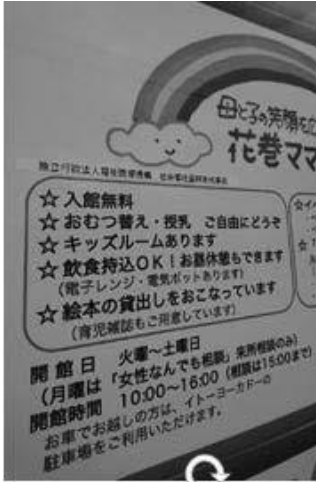 母と子の笑顔を広
花巻ママ
独立行政法人福祉医療機構 社会福祉振興助成事業
☆入館無料
☆おむつ替え・授乳 ご自由にどうぞ
☆キッズルームあります
☆飲食持込OK!お昼休憩もできます
(電子レンジ・電気ポットあります)
☆絵本の貸出しをおこなっています
(育児雑誌もご用意しています)
☆イ
開館日 火曜~土曜日
(月曜は「女性なんでも相談」来所相談のみ)
開館時間 10:00~16:00(相談は15:00まで)
お車でお越しの方は、イトーヨーカドーの
駐車場をご利用いただけます。